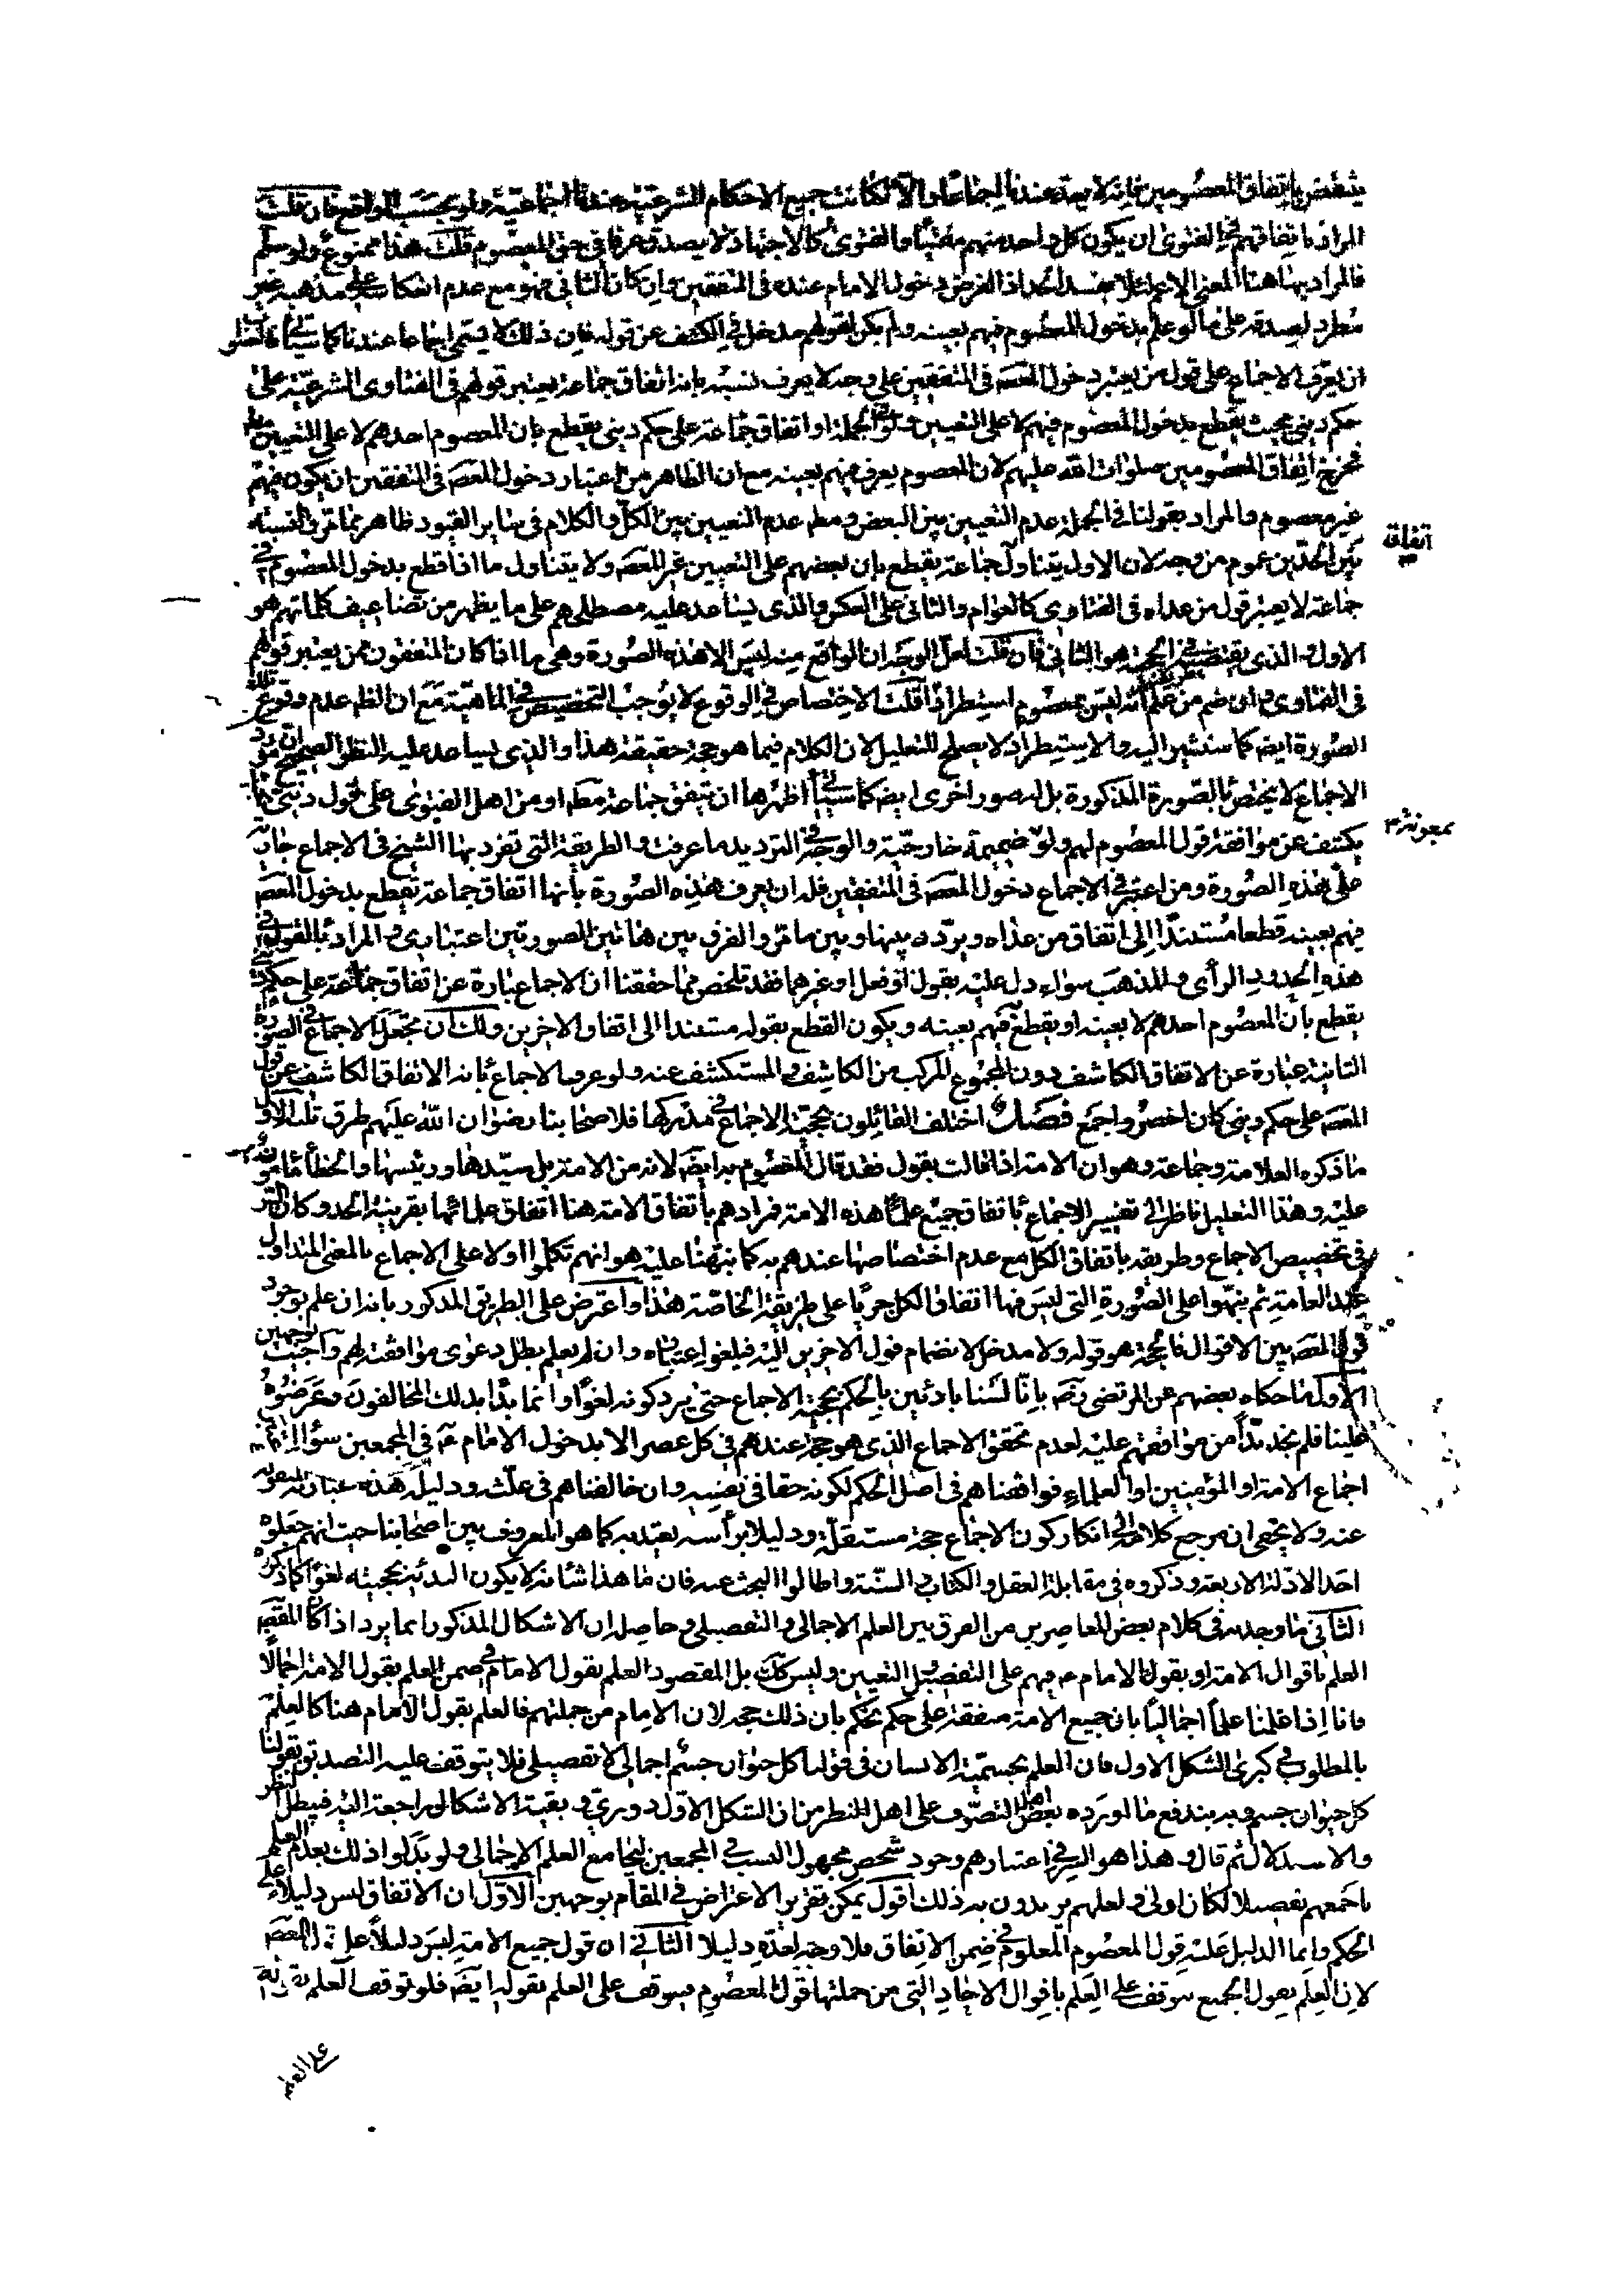 ينتقض باتفاق المعصومين فانه لا يعد عندنا اجماعا والا لكانت جميع الاحكام الشرعية عندنا اجماعية ولو بحسب الواقع فان قلت
المراد باتفاقهم في الفتوى ان يكون كل واحد منهم مفتيا والفتوى كالاجتهاد لا يصدق عرفا في حق المعصوم قلت هذا ممنوع ولو سلم
فالمراد بها هنا المعنى الاعم لئلا يفسد الحد اذ الفرض دخول الامام عنده في المتفقين وان كان الثاني فهو مع عدم انعكاسه على مذهبه غير
مطرد لصدقه على ما لو علم بدخول المعصوم فيهم بعينه ولم يكن لقولهم مدخل في الكشف عن قوله فان ذلك لا يسمى اجماعا عندنا كما سيأتي
ان يعرف الاجماع على قول من يعتبر دخول المعصم في المتفقين على وجه لا يعرف نسبه بانه اتفاق جماعة يعتبر قولهم في الفتاوى الشرعية على
حكم ديني بحيث يقطع بدخول المعصوم فيهم لا على التعيين ولو في الجملة او اتفاق جماعة على حكم ديني يقطع بان المعصوم احدهم لا على التعيين مطلقا
فخرج اتفاق المعصومين صلوات الله عليهم لان المعصوم يعرف منهم بعينه مع ان الظاهر من اعتبار دخول المعصم في المتفقين ان يكون فيهم
غير معصوم والمراد بقولنا في الجملة عدم التعيين بين البعض ومطم عدم التعيين بين الكل والكلام في ساير القيود ظاهر مما مر والنسبة
بين الحدين عموم من وجه لان الاول يتناول جماعة يقطع بان بعضهم على التعيين غير المعصم ولا يتناول ما اذا قطع بدخول المعصوم في
اتفاقه
جماعة لا يعتبر قول من عداه في الفتاوى كالعوام والثاني على العكس والذي يساعد عليه مصطلحهم على ما يظهر من تضاعيف كلماتهم هو
الاول والذي يقتضيه الحجية هو الثاني فان قلت لعل الوجه ان الواقع منه ليس الا هذه الصورة وهي ما اذا كان المتفقون ممن يعتبر قولهم
في الفتاوى وان ضم من علم انه ليس بمعصوم استطرادا قلت الاختصاص في الوقوع لا يوجب التخصيص في الماهية مع ان الظم عدم وقوع تلك
الصورة ايضا كما سنشير اليه والاستطراد لا يصلح للتعليل لان الكلام فيما هو حجة حقيقة هذا والذي يساعد عليه النظر الصحيح ان مورد
الاجماع لا يختص بالصورة المذكورة بل له صور اخرى ايضا كما سيأتي اظهرها ان يتفق جماعة مطم او من اهل الفتوى على قول ديني
يكشف عن موافقة قول المعصوم لهم ولو بمعونة ضميمة خارجية والوجه في الترديد ما عرفت والطريقة التي تفرد بها الشيخ في الاجماع جارية
على هذه الصورة ومن اعتبر في الاجماع دخول المعصم في المتفقين فله ان يعرف هذه الصورة بانها اتفاق جماعة يقطع بدخول المعصم
فيهم بعينه قطعا مستندا الى اتفاق من عداه ويردد بينها وبين ما مر والفرق بين هاتين الصورتين اعتباري والمراد بالقول في
هذه الحدود الراى والمذهب سواء دل عليه بقول او فعل او غيرهما فقد تلخص مما حققنا ان الاجماع عبارة عن اتفاق جماعة على حكم
يقطع بان المعصوم احدهم لا بعينه او يقطع به فيهم بعينه ويكون القطع بقوله مستندا الى اتفاق الاخرين ولك ان تجعل الاجماع في الصورة
الثانية عبارة عن الاتفاق الكاشف دون المجموع المركب من الكاشف والمستكشف عنه ولو عرف الاجماع بانه الاتفاق الكاشف عن قول
المعصم على حكم ديني كان اخصر واجمع فصل اختلف القائلون بحجية الاجماع في مدركها فلاصحابنا رضوان الله عليهم طرق ثلث الاول
ما ذكره العلامة وجماعة وهو ان الامة اذا قالت بقول فقد قال المعصوم به ايضا لانه من الامة بل سيدها ورئيسها والخطأ مأمون
عليه وهذا التعليل ناظر الى تفسير الاجماع باتفاق جميع علماء هذه الامة فمرادهم باتفاق الامة هنا اتفاق علمائها بقرينة الحد وكان السر
في تخصيص الاجماع وطريقه باتفاق الكل مع عدم اختصاصها عندهم به كما نبهنا عليه هو انهم تكلموا اولا على الاجماع بالمعنى المتداول
عند العامة ثم نبهوا على الصورة التي ليس فيها اتفاق الكل جريا على طريقة الخاصة هذا واعترض على الطريق المذكور بانه ان علم بوجود
قول المعصم بين الاقوال فالحجة هو قوله ولا مدخل لانضمام قول الاخرين اليه فيلغو اعتباره وان لم يعلم بطل دعوى موافقته لهم واجيب بوجهين
الاول ما حكاه بعضهم عن المرتضى رضم بانا لسنا بادئين بالحكم بحجية الاجماع حتى يرد كونه لغوا وانما بدأ بذلك المخالفون وعرضوه
علينا فلم نجد بدا من موافقتهم عليه لعدم تحقق الاجماع الذي هو حجة عندهم في كل عصر الا بدخول الامام ع في المجمعين سواء
اجماع الامة او المؤمنين او العلماء فوافقناهم في اصل الحكم لكونه حقا في نفسه وان خالفناهم في علته ودليله هذه عبارته المنقولة
عنه ولا يخفى ان مرجع كلامه الى انكار كون الاجماع حجة مستقلة ودليلا برأسه يعتد به كما هو المعروف بين اصحابنا حيث انهم جعلوه
احد الادلة الاربعة وذكروه في مقابلة العقل والكتاب والسنة واطالوا البحث عنه فان ما هذا شانه لا يكون البدئة بحجيته لغوا كما ذكره
الثاني ما وجدته في كلام بعض المعاصرين من الفرق بين العلم الاجمالي والتفصيلي وحاصله ان الاشكال المذكور انما يرد اذا كان المقصم
العلم باقوال الامة او بقول الامام ع فيهم على التفصيل التعيين وليس كك بل المقصود العلم بقول الامام في ضمن العلم بقول الامة اجمالا
فانا اذا علمنا علما اجماليا بان جميع الامة متفقة على حكم نحكم بان ذلك حجة لان الامام من جملتهم فالعلم بقول الامام هنا كالعلم
بالمطلوب في كبرى الشكل الاول فان العلم بجسمية الانسان في قولنا كل حيوان جسم اجمالي لا تفصيلي فلا يتوقف عليه التصديق بقولنا
كل حيوان جسم وبه يندفع ما اورده بعض اهل التصوف على اهل النظر من ان الشكل الاول دوري وبقية الاشكال راجعة اليه فيبطل النظر
والاستدلال ثم قال وهذا هو السر في اعتبارهم وجود شخص مجهول النسب في المجمعين ليجامع العلم الاجمالي ولو بدلوا ذلك بعدم العلم
باجمعهم تفصيلا لكان اولى ولعلهم يريدون به ذلك اقول يمكن تقرير الاعتراض في المقام بوجهين الاول ان الاتفاق ليس دليلا على
الحكم وانما الدليل عليه قول المعصوم المعلوم في ضمن الاتفاق فلا وجه لعده دليلا الثاني ان قول جميع الامة ليس دليلا على قول المعصم
لان العلم بقول الجميع يتوقف على العلم باقوال الاحاد التي من جملتها قول المعصوم فيتوقف على العلم بقوله ايضا فلو توقف العلم بقوله
على العلم